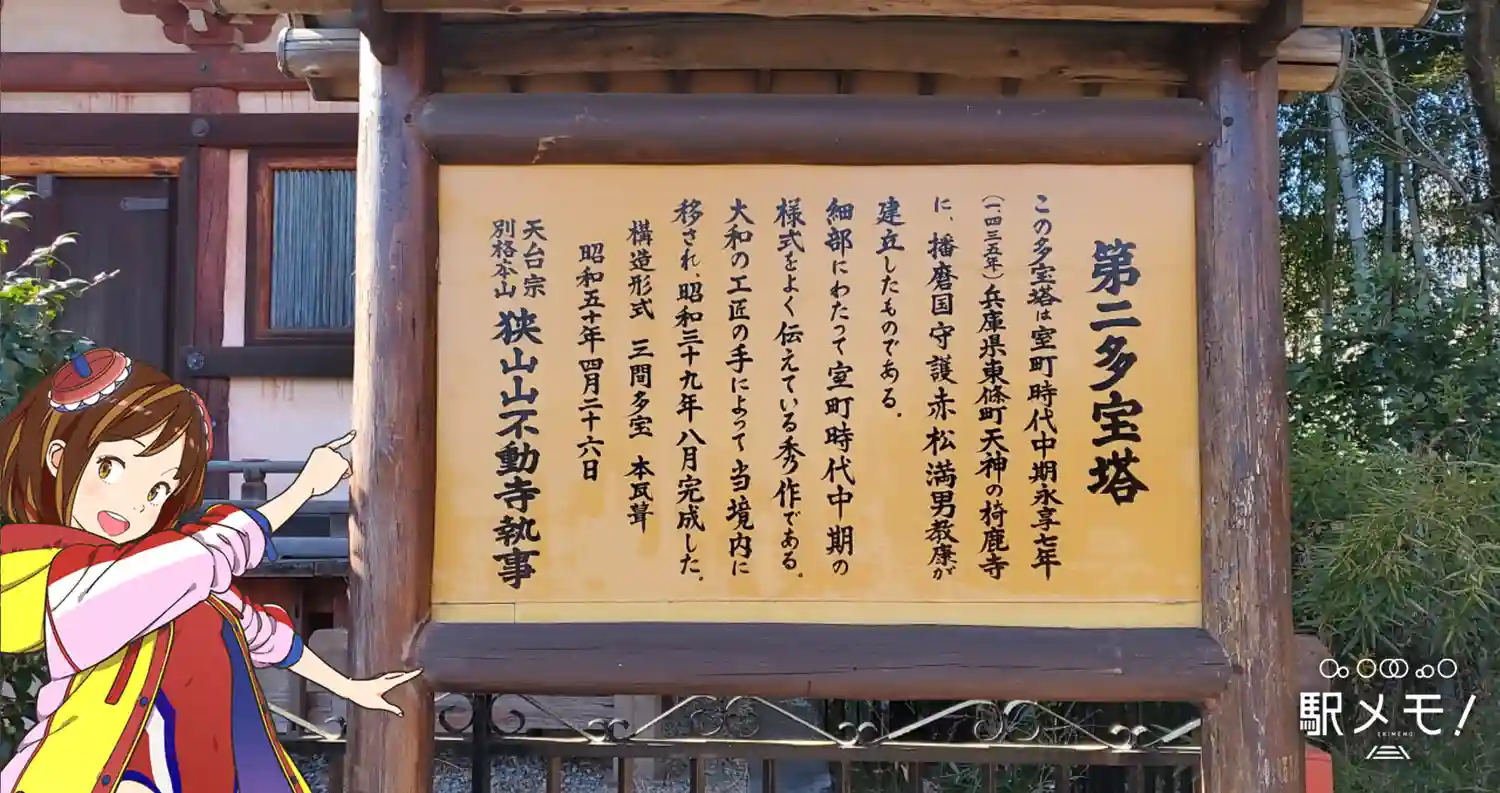 第二多宝塔
この多宝塔は室町時代中期永享七年
(一、四三五年)兵庫県東條町天神の椅鹿寺
に、播磨国守護赤松満男教康が
建立したものである。
細部にわたって室町時代中期の
様式をよく伝えている秀作である。
大和の工匠の手によって当境内に
移され、昭和三十九年八月完成した。
構造形式 三間多宝 本瓦葺
昭和五十年四月二十六日
天台宗
別格本山
狭山山不動寺執事
駅メモ!
EKIMEMO